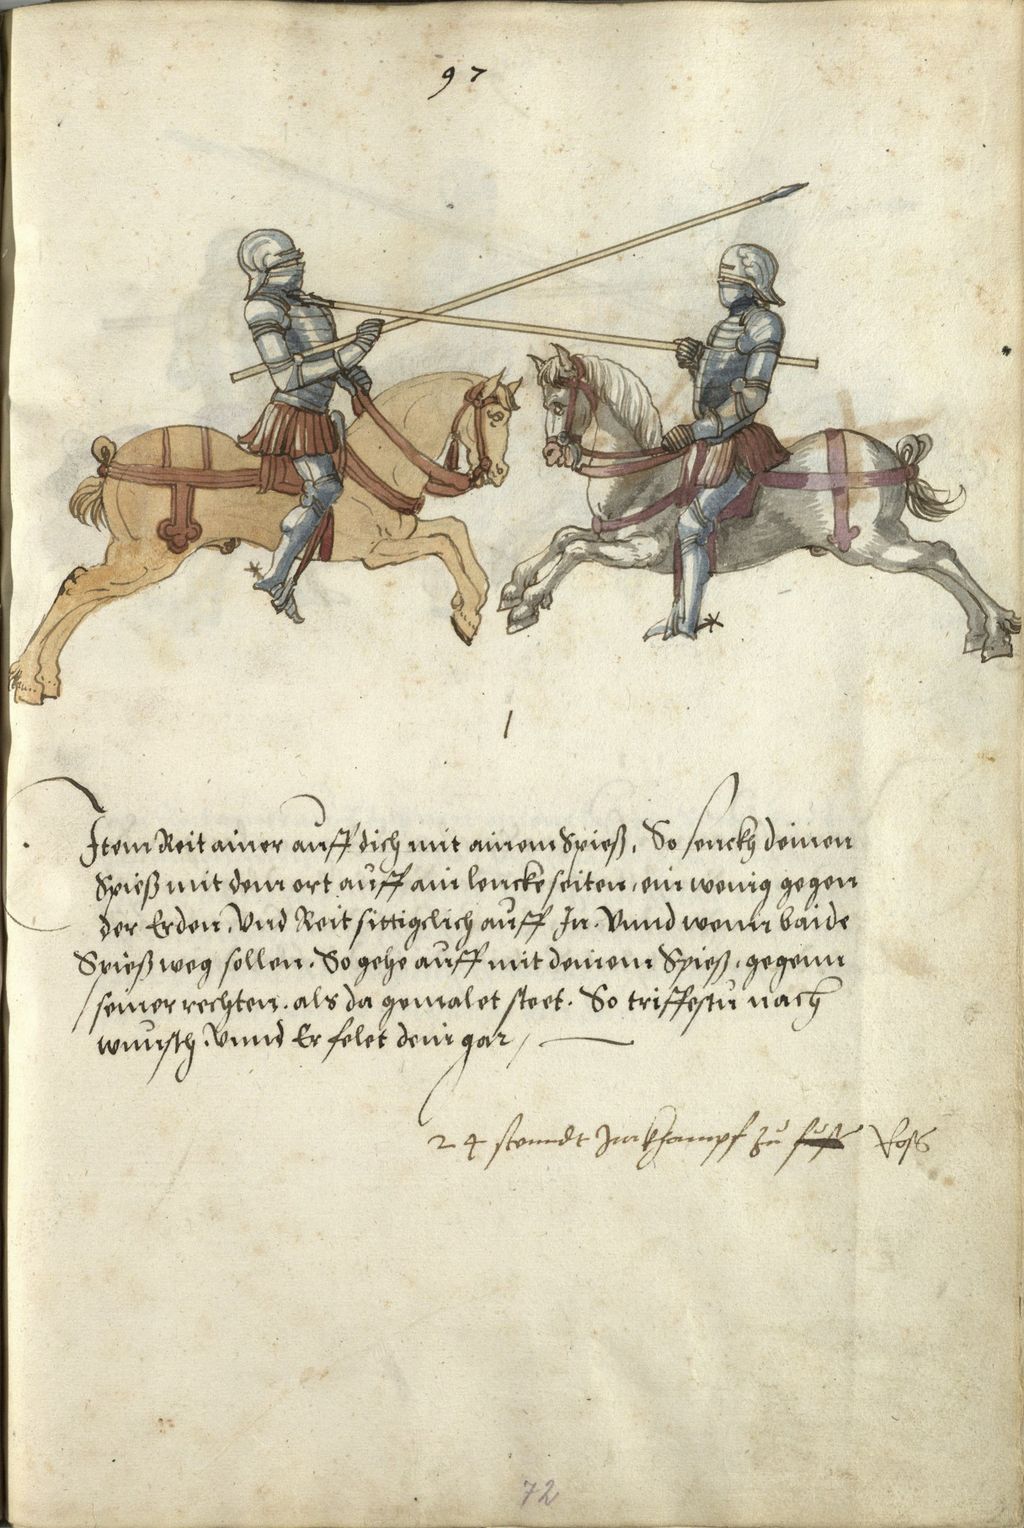 97
1
Item Reit ainer auff dich mit ainem Spieß, So senckh deinen
Spieß mit dem ort auff ain lencke seiten, ein wenig gegen
der Erden. Vnd Reit sittigclich auff In. Vnnd wenn baide
Spieß weg sollen. So gehe auff mit deinem Spieß, gegenn
seiner rechten. als da gemalet steet. So triffestu nach
wunsch. Vnnd Er felet dein gar
24 stenndt Im khampf zu fuß Roß
72